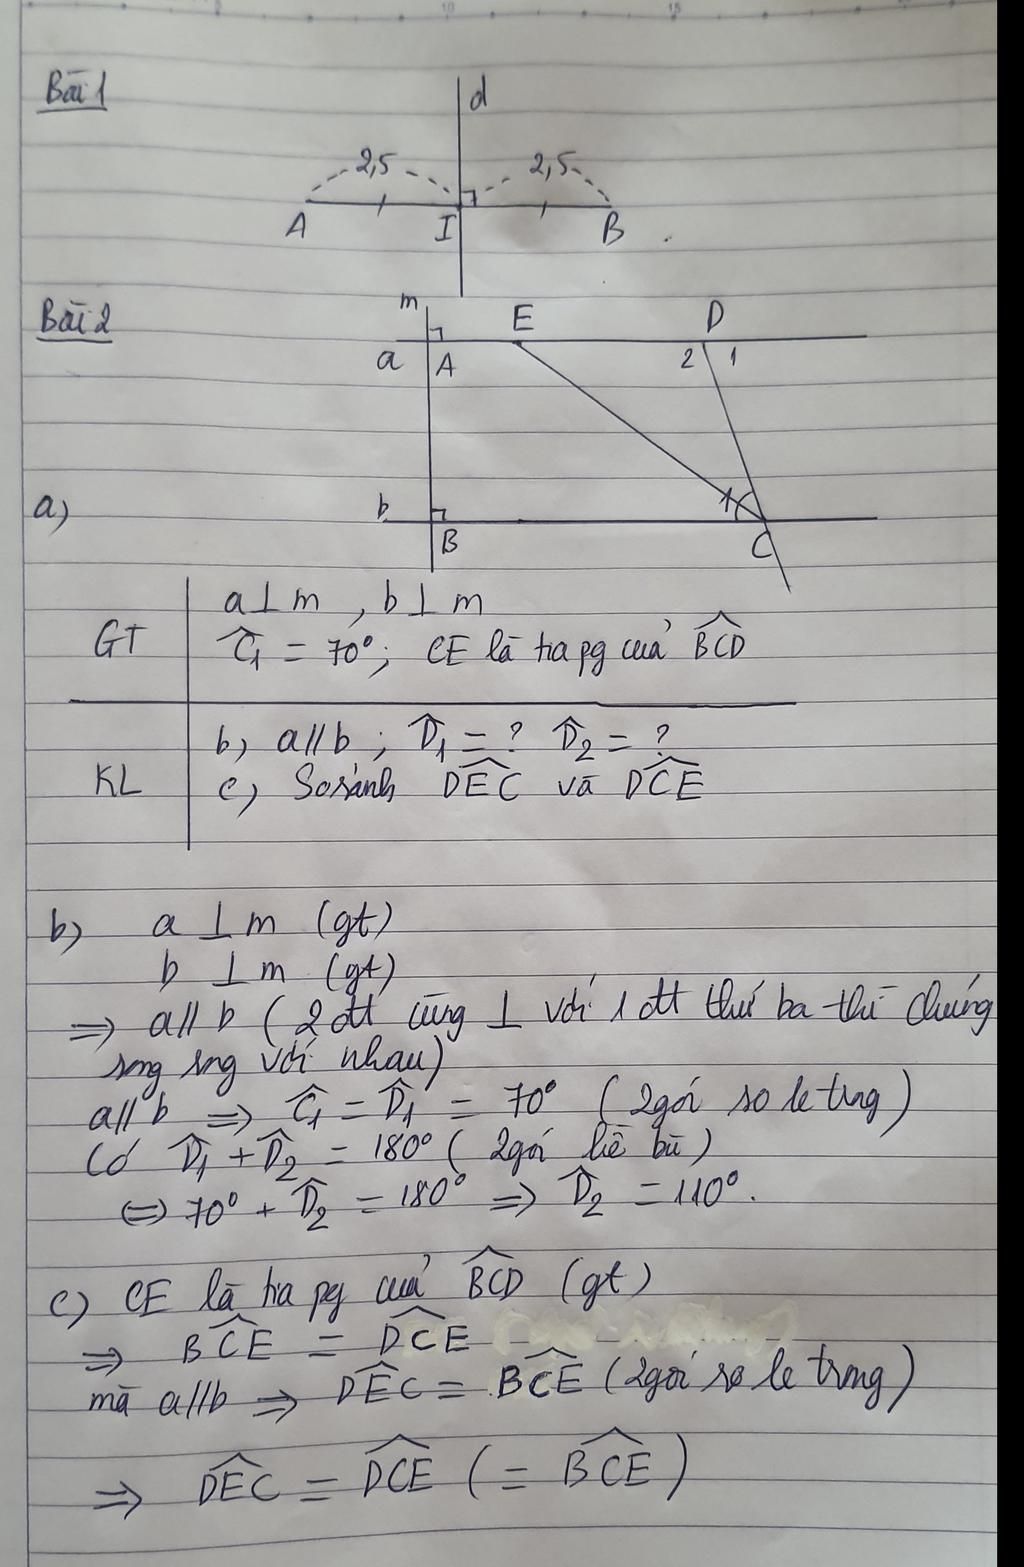 10 15
Bài 1
d
2,5 2,5
A I B
Bài 2
m E D
a A 2 1
a)
b B 1 C
GT a ⊥ m , b ⊥ m
Ĉ₁ = 70°; CE là tia pg của B̂CD
KL b) a // b ; D̂₁ = ? D̂₂ = ?
c) So sánh DÊC và DĈE
b) a ⊥ m (gt)
b ⊥ m (gt)
⇒ a // b ( 2 đt cùng ⊥ với 1 đt thứ ba thì chúng
song song với nhau)
a // b ⇒ Ĉ₁ = D̂₁ = 70° ( 2 góc so le trong )
Có D̂₁ + D̂₂ = 180° ( 2 góc kề bù )
⇔ 70° + D̂₂ = 180° ⇒ D̂₂ = 110°.
c) CE là tia pg của BĈD (gt)
⇒ BĈE = DĈE
mà a // b ⇒ DÊC = BĈE (2 góc so le trong)
⇒ DÊC = DĈE ( = BĈE )